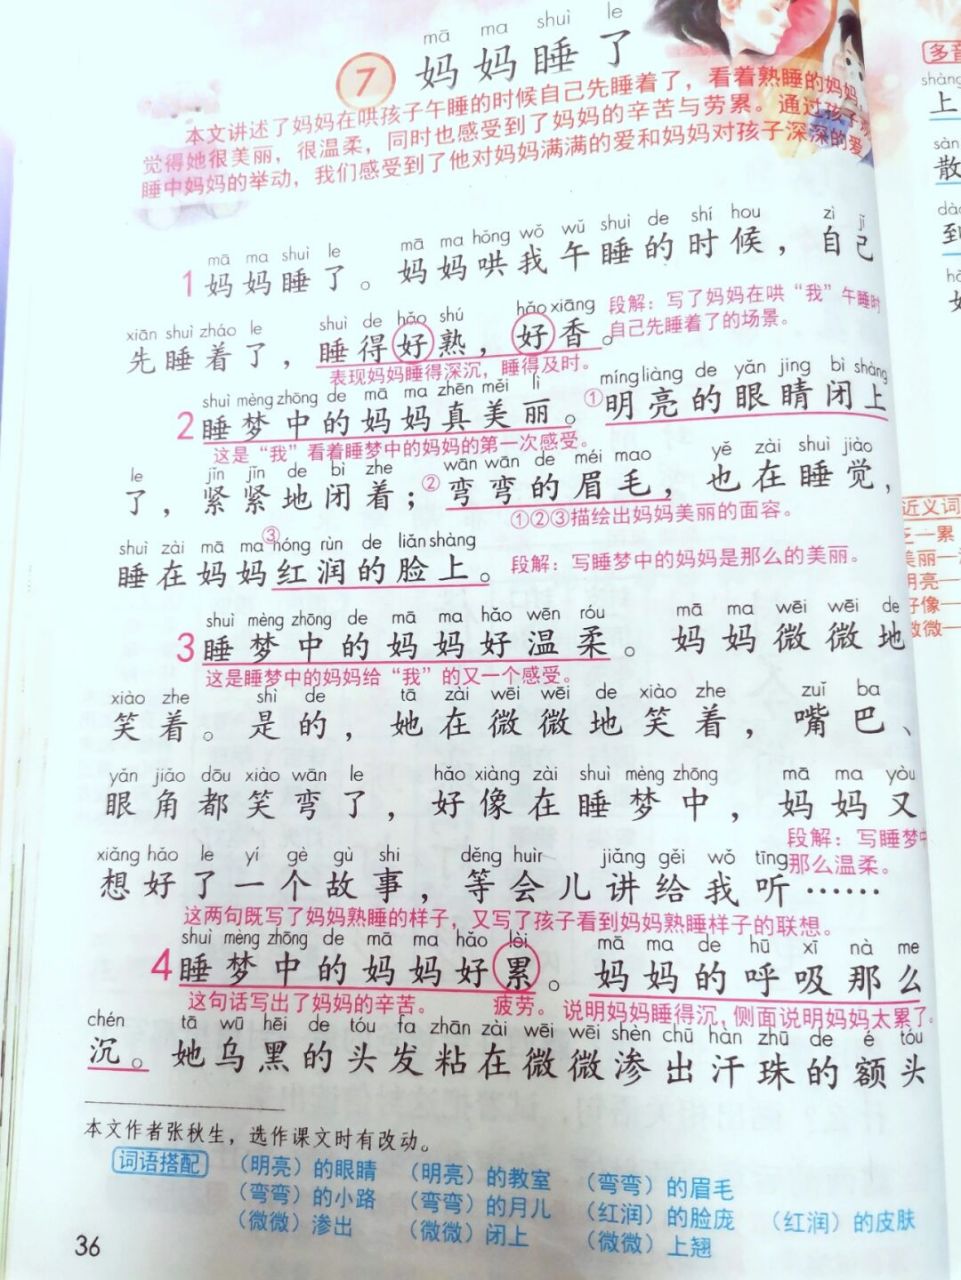 mā ma shuì le
7 妈妈睡了
本文讲述了妈妈在哄孩子午睡的时候自己先睡着了，看着熟睡的妈妈，
觉得她很美丽，很温柔，同时也感受到了妈妈的辛苦与劳累。通过孩子
睡中妈妈的举动，我们感受到了他对妈妈满满的爱和妈妈对孩子深深的爱
mā ma shuì le mā ma hǒng wǒ wǔ shuì de shí hou zì jǐ
1妈妈睡了。妈妈哄我午睡的时候，自己
xiān shuì zháo le shuì de hǎo shú hǎo xiāng
先睡着了，睡得好熟，好香。
段解：写了妈妈在哄“我”午睡时
自己先睡着了的场景。
表现妈妈睡得深沉，睡得及时。
shuì mèng zhōng de mā ma zhēn měi lì míng liàng de yǎn jing bì shàng
2睡梦中的妈妈真美丽。①明亮的眼睛闭上
这是“我”看着睡梦中的妈妈的第一次感受。
le jǐn jǐn de bì zhe wān wān de méi mao yě zài shuì jiào
了，紧紧地闭着；②弯弯的眉毛，也在睡觉，
①②③描绘出妈妈美丽的面容。
shuì zài mā ma hóng rùn de liǎn shàng
③
睡在妈妈红润的脸上。
段解：写睡梦中的妈妈是那么的美丽。
shuì mèng zhōng de mā ma hǎo wēn róu mā ma wēi wēi de
3睡梦中的妈妈好温柔。妈妈微微地
这是睡梦中的妈妈给“我”的又一个感受。
xiào zhe shì de tā zài wēi wēi de xiào zhe zuǐ ba
笑着。是的，她在微微地笑着，嘴巴、
yǎn jiǎo dōu xiào wān le hǎo xiàng zài shuì mèng zhōng mā ma yòu
眼角都笑弯了，好像在睡梦中，妈妈又
段解：写睡梦中
那么温柔。
xiǎng hǎo le yí gè gù shi děng huìr jiǎng gěi wǒ tīng
想好了一个故事，等会儿讲给我听……
这两句既写了妈妈熟睡的样子，又写了孩子看到妈妈熟睡样子的联想。
shuì mèng zhōng de mā ma hǎo lèi mā ma de hū xī nà me
4睡梦中的妈妈好累。妈妈的呼吸那么
这句话写出了妈妈的辛苦。 疲劳。 说明妈妈睡得沉，侧面说明妈妈太累了。
chén tā wū hēi de tóu fa zhān zài wēi wēi shèn chū hàn zhū de é tóu
沉。她乌黑的头发粘在微微渗出汗珠的额头
本文作者张秋生，选作课文时有改动。
词语搭配 （明亮）的眼睛 （明亮）的教室 （弯弯）的眉毛
（弯弯）的小路 （弯弯）的月儿 （红润）的脸庞 （红润）的皮肤
（微微）渗出 （微微）闭上 （微微）上翘
36
多音
shàng
上
sàn
散
到
近义词
美丽—
明亮—
好像—
微微—